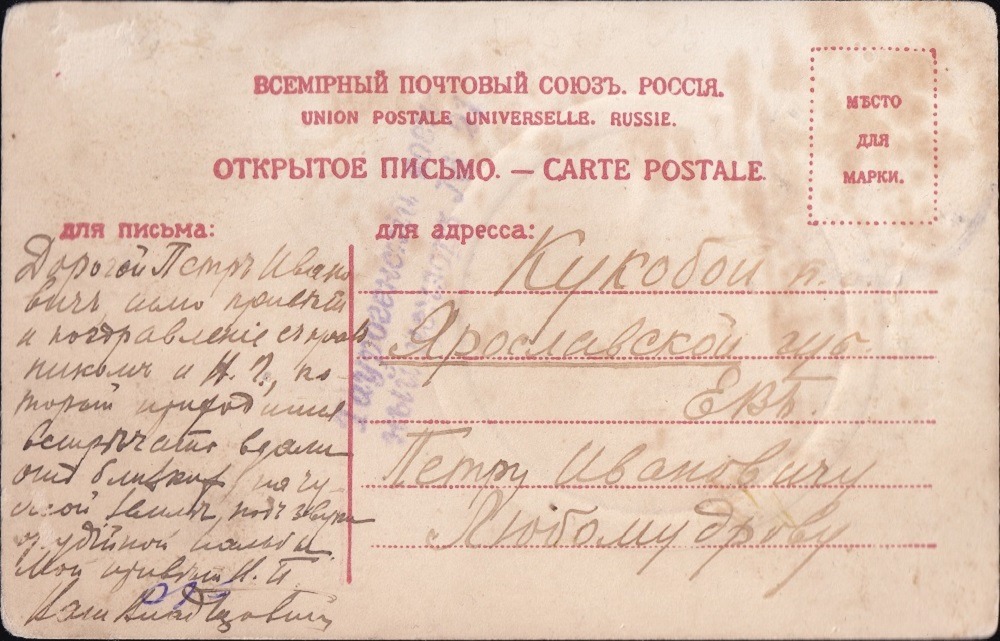 ВСЕМІРНЫЙ ПОЧТОВЫЙ СОЮЗЪ. РОССІЯ.
UNION POSTALE UNIVERSELLE. RUSSIE.
ОТКРЫТОЕ ПИСЬМО. — CARTE POSTALE.
МѢСТО
ДЛЯ
МАРКИ.
для письма:
Дорогой Петръ Ивано
вичъ шлю привѣтъ
и поздравленіе съ празд
никомъ и Н. Г., ко-
торый приходится
встрѣчать вдали
отъ близкихъ на чу
жой землѣ подъ звуки
орудійной пальбы
Мой привѣтъ И. П.
для адреса:
Кукобой п.
Ярославской губ.
ЕВБ.
Петру Ивановичу
Любомудрову